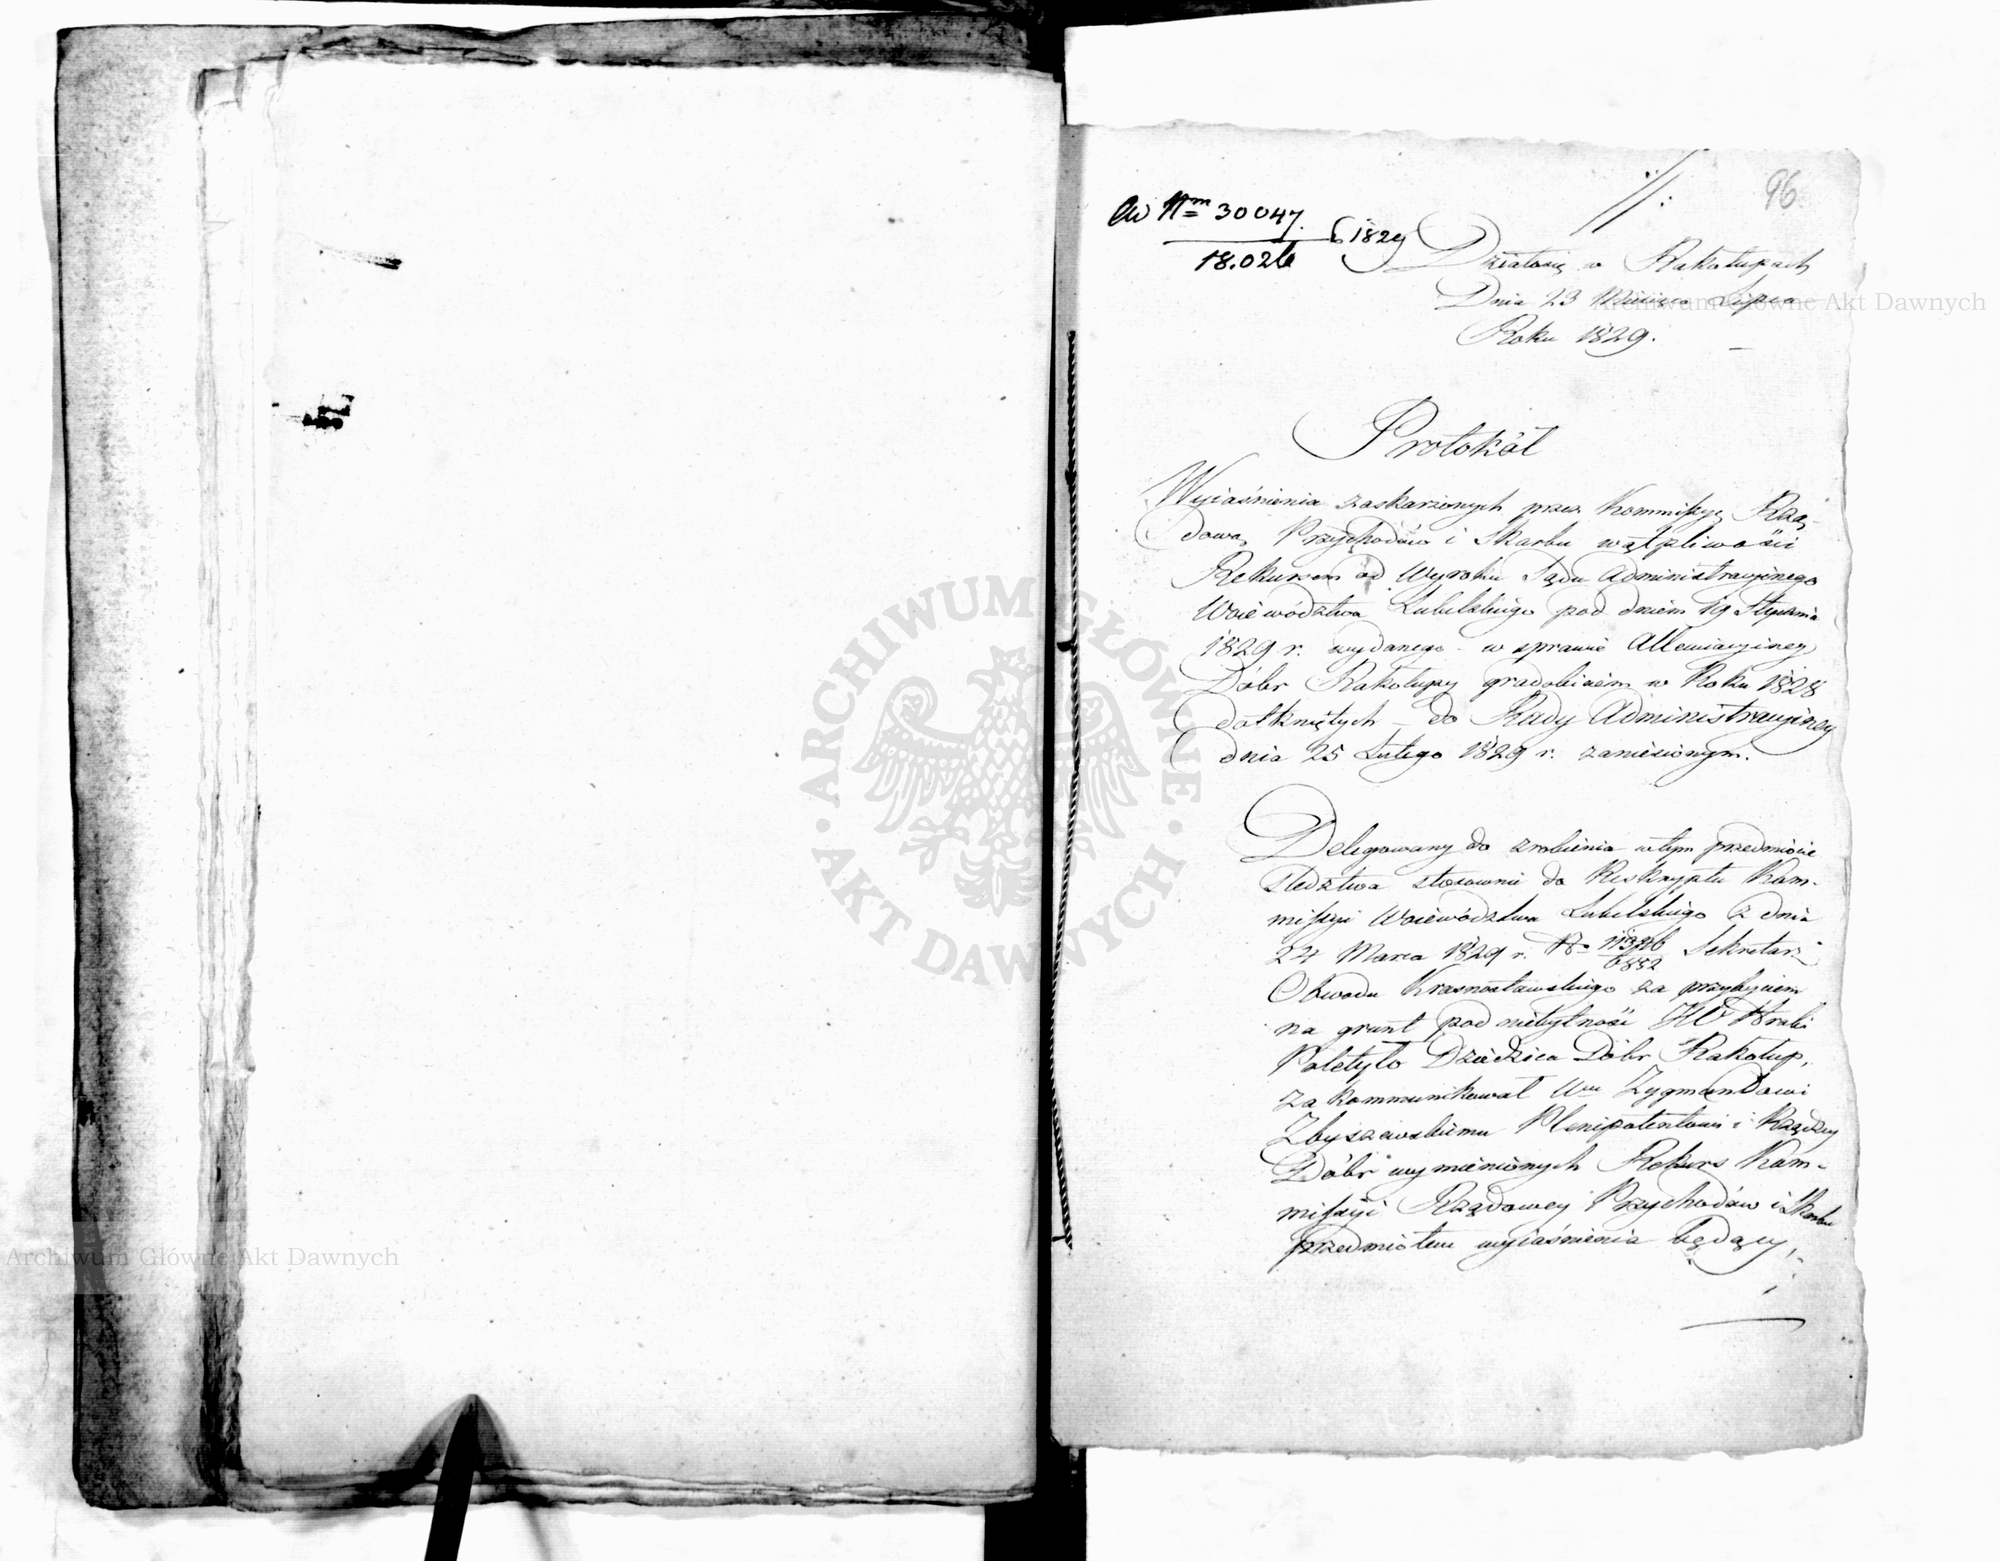 96
ad Nrm 30047/18.026 1829
Działosię w Rakołupach
Dnia 23 Miesiąca Lipca
Roku 1829.
Protokół
Wyiaśnienia zaskarżonych przez Kommissyę Rzą-
dową Przychodów i Skarbu wątpliwości
Rekursem od Wyroku Sądu Administracyinego
Woiewództwa Lubelskiego pod dniem 19 Stycznia
1829 r. wydanego - w sprawie Allewiacyiney
Dóbr Rakołupy gradobiciem w Roku 1828
dotkniętych - do Rady Administracyiney
dnia 25 Lutego 1829 r. zaniesionym.
Delegowany do zrobienia wtym przedmiocie
śledztwa stosownie do Reskryptu Kom-
missyi Woiewództwa Lubelskiego z dnia
24 Marca 1829 r. No Sekretarz
Obwodu Krasnostawskiego za przybyciem
na grunt pod niebytność JW Hrabi
Poletyło Dziedzica Dóbr Rakołup,
zakommunikował Wmu Zygmuntowi
Zbyszewskiemu Plenipotentowi i Rządzcy
Dóbr wymienionych Rekurs Kom-
missyi Rządowey Przychodów i Skarbu
przedmiotem wyiaśnienia będący,
Archiwum Główne Akt Dawnych
Archiwum Główne Akt Dawnych
ARCHIWUM GŁÓWNE
AKT DAWNYCH